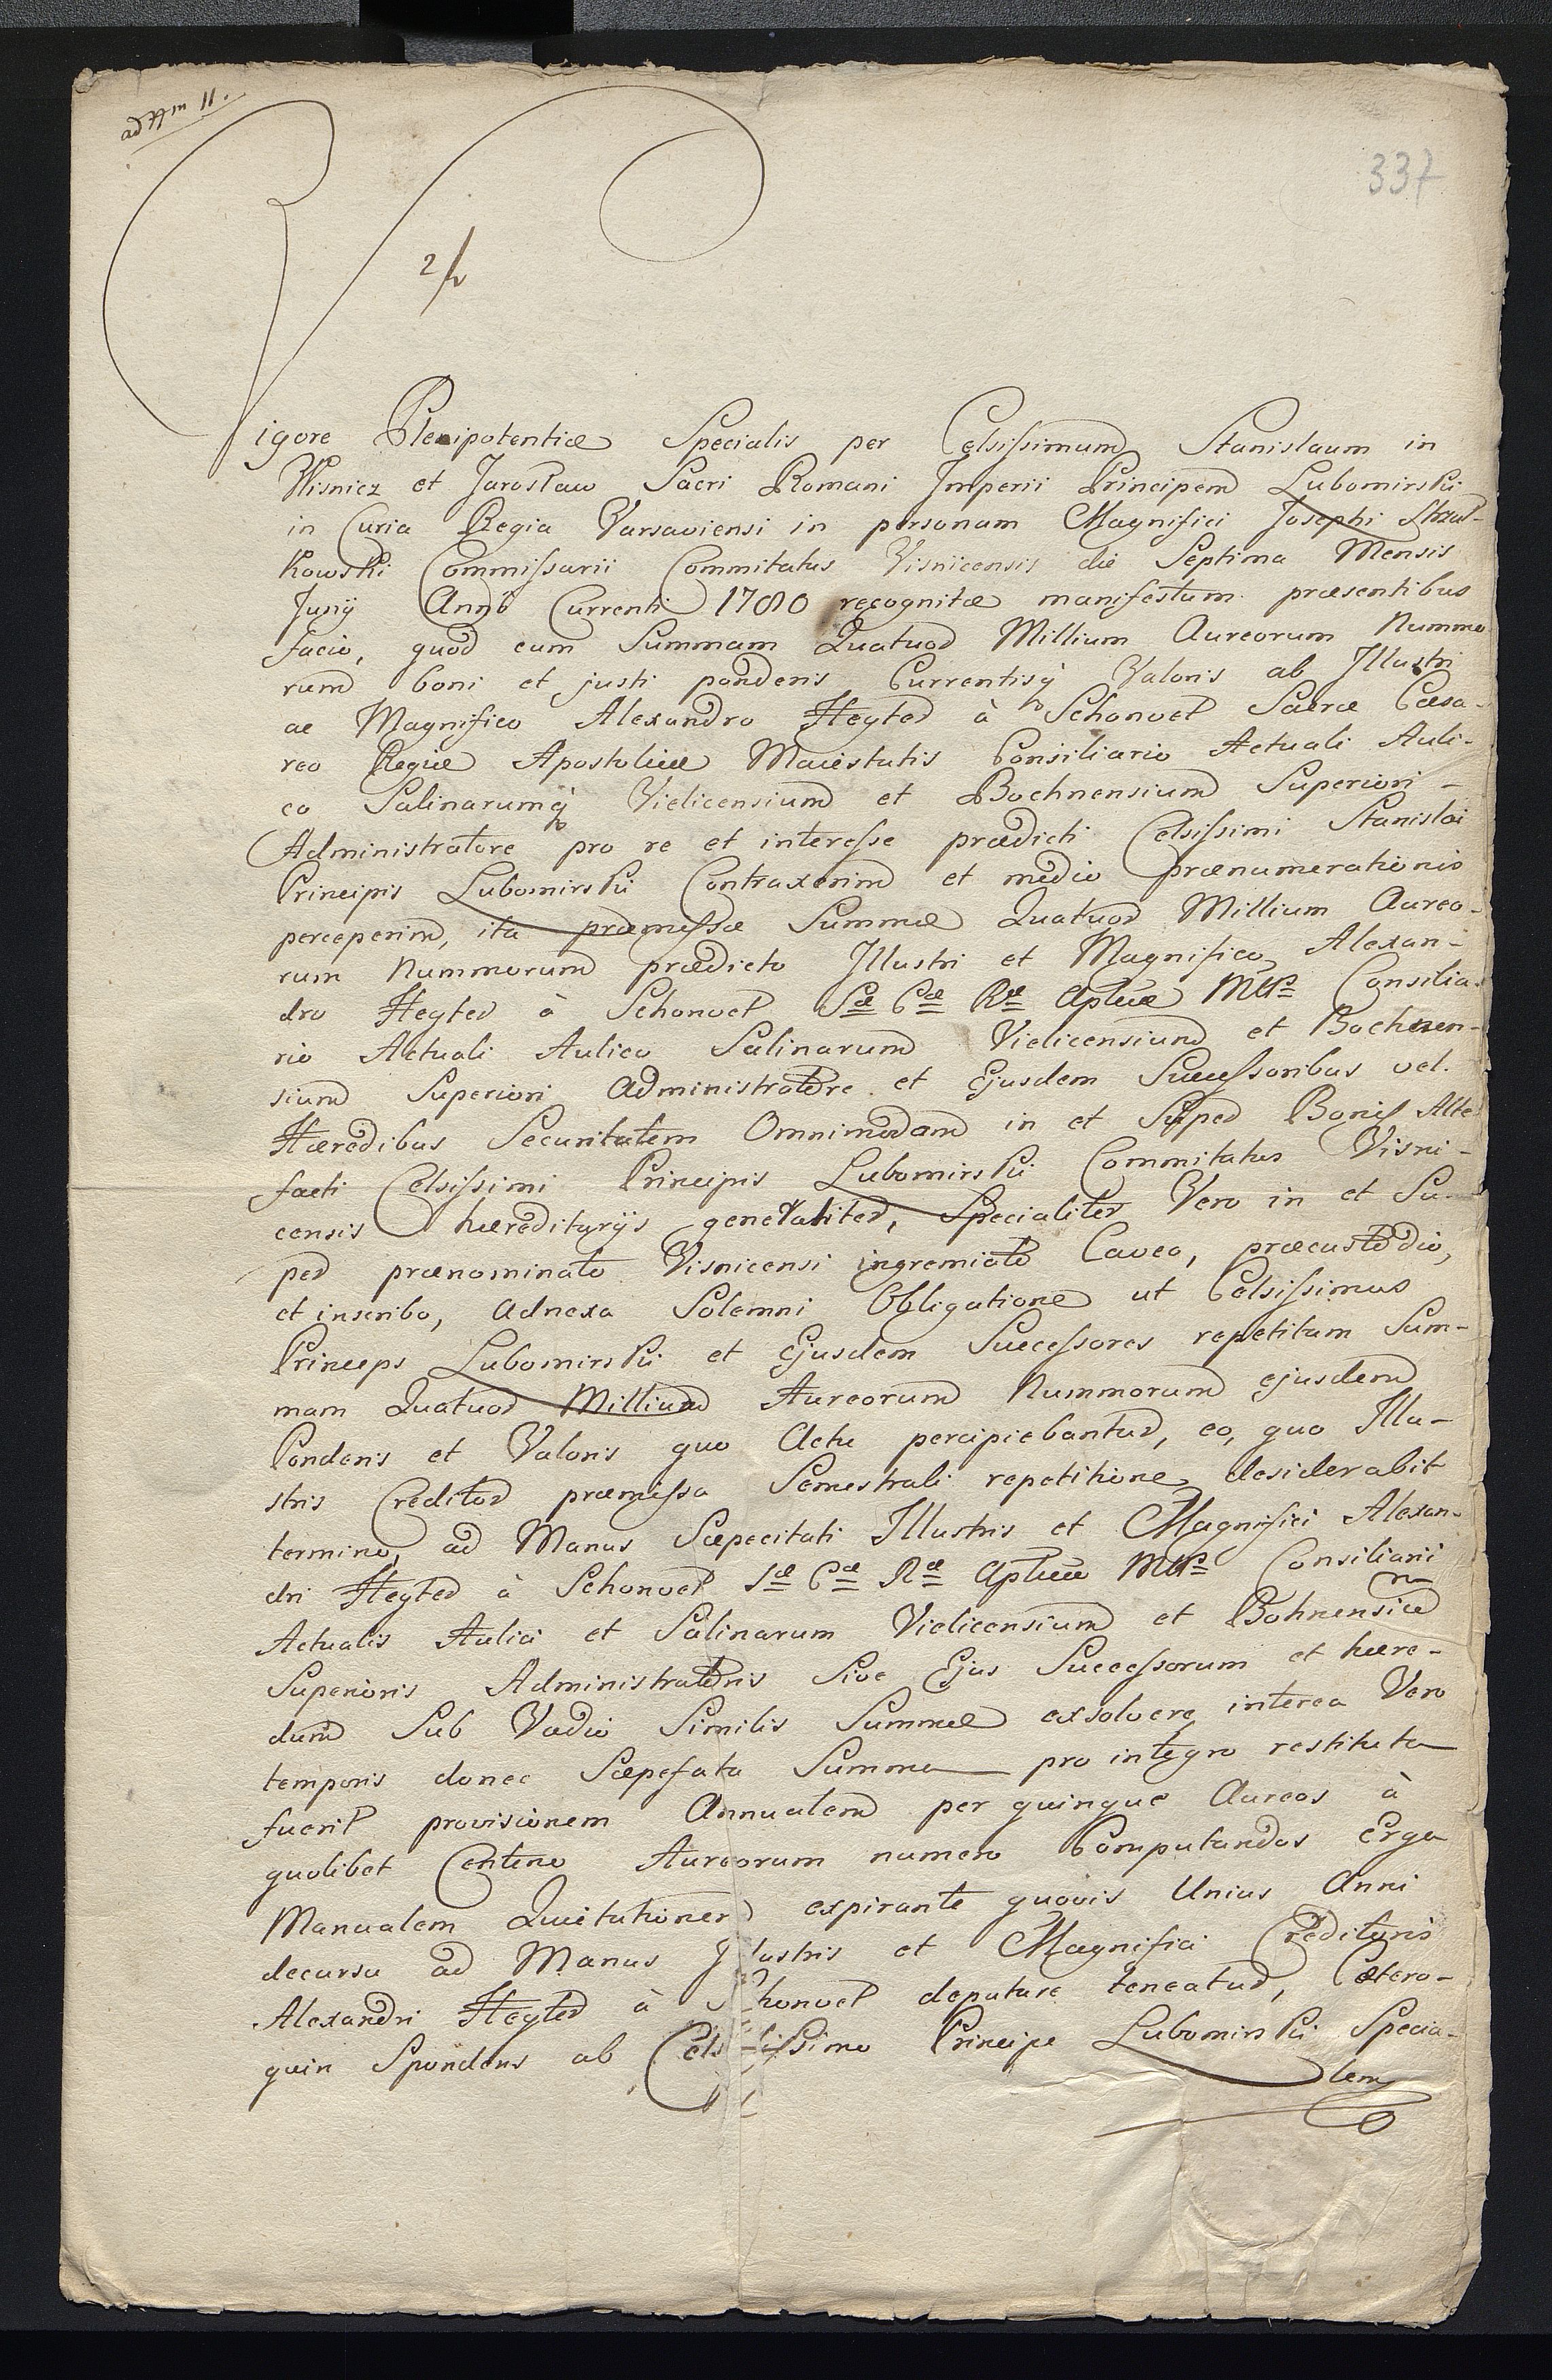 ad Nm 11.
337
2/h
Vigore Plenipotentiæ Specialis per Celsissimum Stanislaum in
Wisnicz et Jarosław Sacri Romani Imperii Principem Lubomirski
in Curia Regia Varsaviensi in personam Magnifici Josephi
kowski Commissarii Commitatus Visnicensis die Septima Mensis
Junÿ Anno Currenti 1780 recognitæ manifestum præsentibus
facio, quod cum Summam Quatuor Millium Aureorum Nummo
rum boni et justi ponderis Currentisq Valoris ab Illustri
ac Magnifico Alexandro Heyter à Schonvet Sacræ Cæsa-
reo Regiæ Apostolicæ Maiestatis Consiliario Actuali Auli-
co Salinarumq Vielicensium et Bochnensium Superiori-
Administratore pro re et interesse prædicti Celsissimi Stanislai
Principis Lubomirski Contraxerim et medio prænumerationis
perceperim, ita præmissæ Summæ Quatuor Millium Aureo-
rum Nummorum prædicto Illustri et Magnifico Alexan-
dro Heyter à Schonvet Sæ Cæ Ræ Aplicæ Mttis Consilia-
rio Actuali Aulico Salinarum Vielicensium et Bochnen-
sium Superiori Administratore et Ejusdem Successoribus vel
Hæredibus Securitatem Omnimodam in et Super Bonis Alte
facti Celsissimi Principis Lubomirski Commitatus Visni-
censis hæreditarÿs generaliter, Specialiter Vero in et Su-
per prænominato Visnicensi ingremiato Caveo, præcustodio,
et inscribo, adnexa Solemni Obligatione ut Celsissimus
Princeps Lubomirski et Ejusdem Successores repetitam Sum-
mam Quatuor Millium Aureorum Nummorum ejusdem
Ponderis et Valoris quo Actu percipiebantur, eo, quo Illu-
stris Creditor præmissa Semestrali repetitione desiderabit
termino, ad Manus Sæpecitati Illustris et Magnifici Alexan-
dri Heyter à Schonvet Sæ Cæ Ræ Aplicæ Mttis Consiliarii
Actualis Aulici et Salinarum Vielicensium et Bohnensium
Superioris Administratoris Sive Ejus Successorum et hære-
dum Sub Vadio Similis Summæ exsolvere interea Vero
temporis donec Sæpefata Summa pro integro restituta
fuerit provisionem Annualem per quinque Aureos à
quolibet Centeno Aureorum numero Computandos Erga
Manualem Quietationem expirante quovis Unius Anni
decursu ad Manus Illustris et Magnifici Creditoris
Alexandri Heyter à Schonvet deputare teneatur, Cætero-
quin Spondens ab Celsissimo Principe Lubomirski Specia-
lem